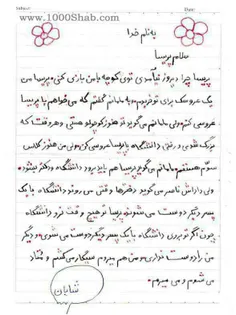 www.1000Shab.com
به نام خدا
سلام پریسا
پریسا چرا دیروز نیامدی توی کوچه با من بازی کنی. پریسا من
یک عروسک برای تو خریدم و به مامانم گفتم که می خواهم با پریسا
عروسی کنم ولی مامانم می گوید تو هنوز کوچولو هستی و هر وقت که
بزرگ شدی و رفتی دانشگاه با پریسا عروسی کن ولی من هنوز کلاس
سوم هستم مامانم می گوید پریسا هم باید برود دانشگاه و دکتر بشود.
ولی داداش ناصر می گوید دخترها وقتی می روند دانشگاه با یک
پسر دیگر دوست می شوند. پریسا تو هیچ وقت نرو دانشگاه
چون اگر تو بروی دانشگاه با یک پسر دیگر دوست می شوی و دیگر
من را دوست نداری و من هم میروم سیگار می کشم و معتاد
می شوم و می میرم.
شایان